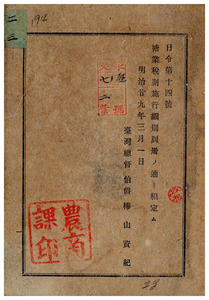 日令第十四號
糖業稅則施行細則別冊ノ通リ相定ム
明治廿九年三月一日
臺灣總督伯爵樺山資紀
農商課印
194
二三